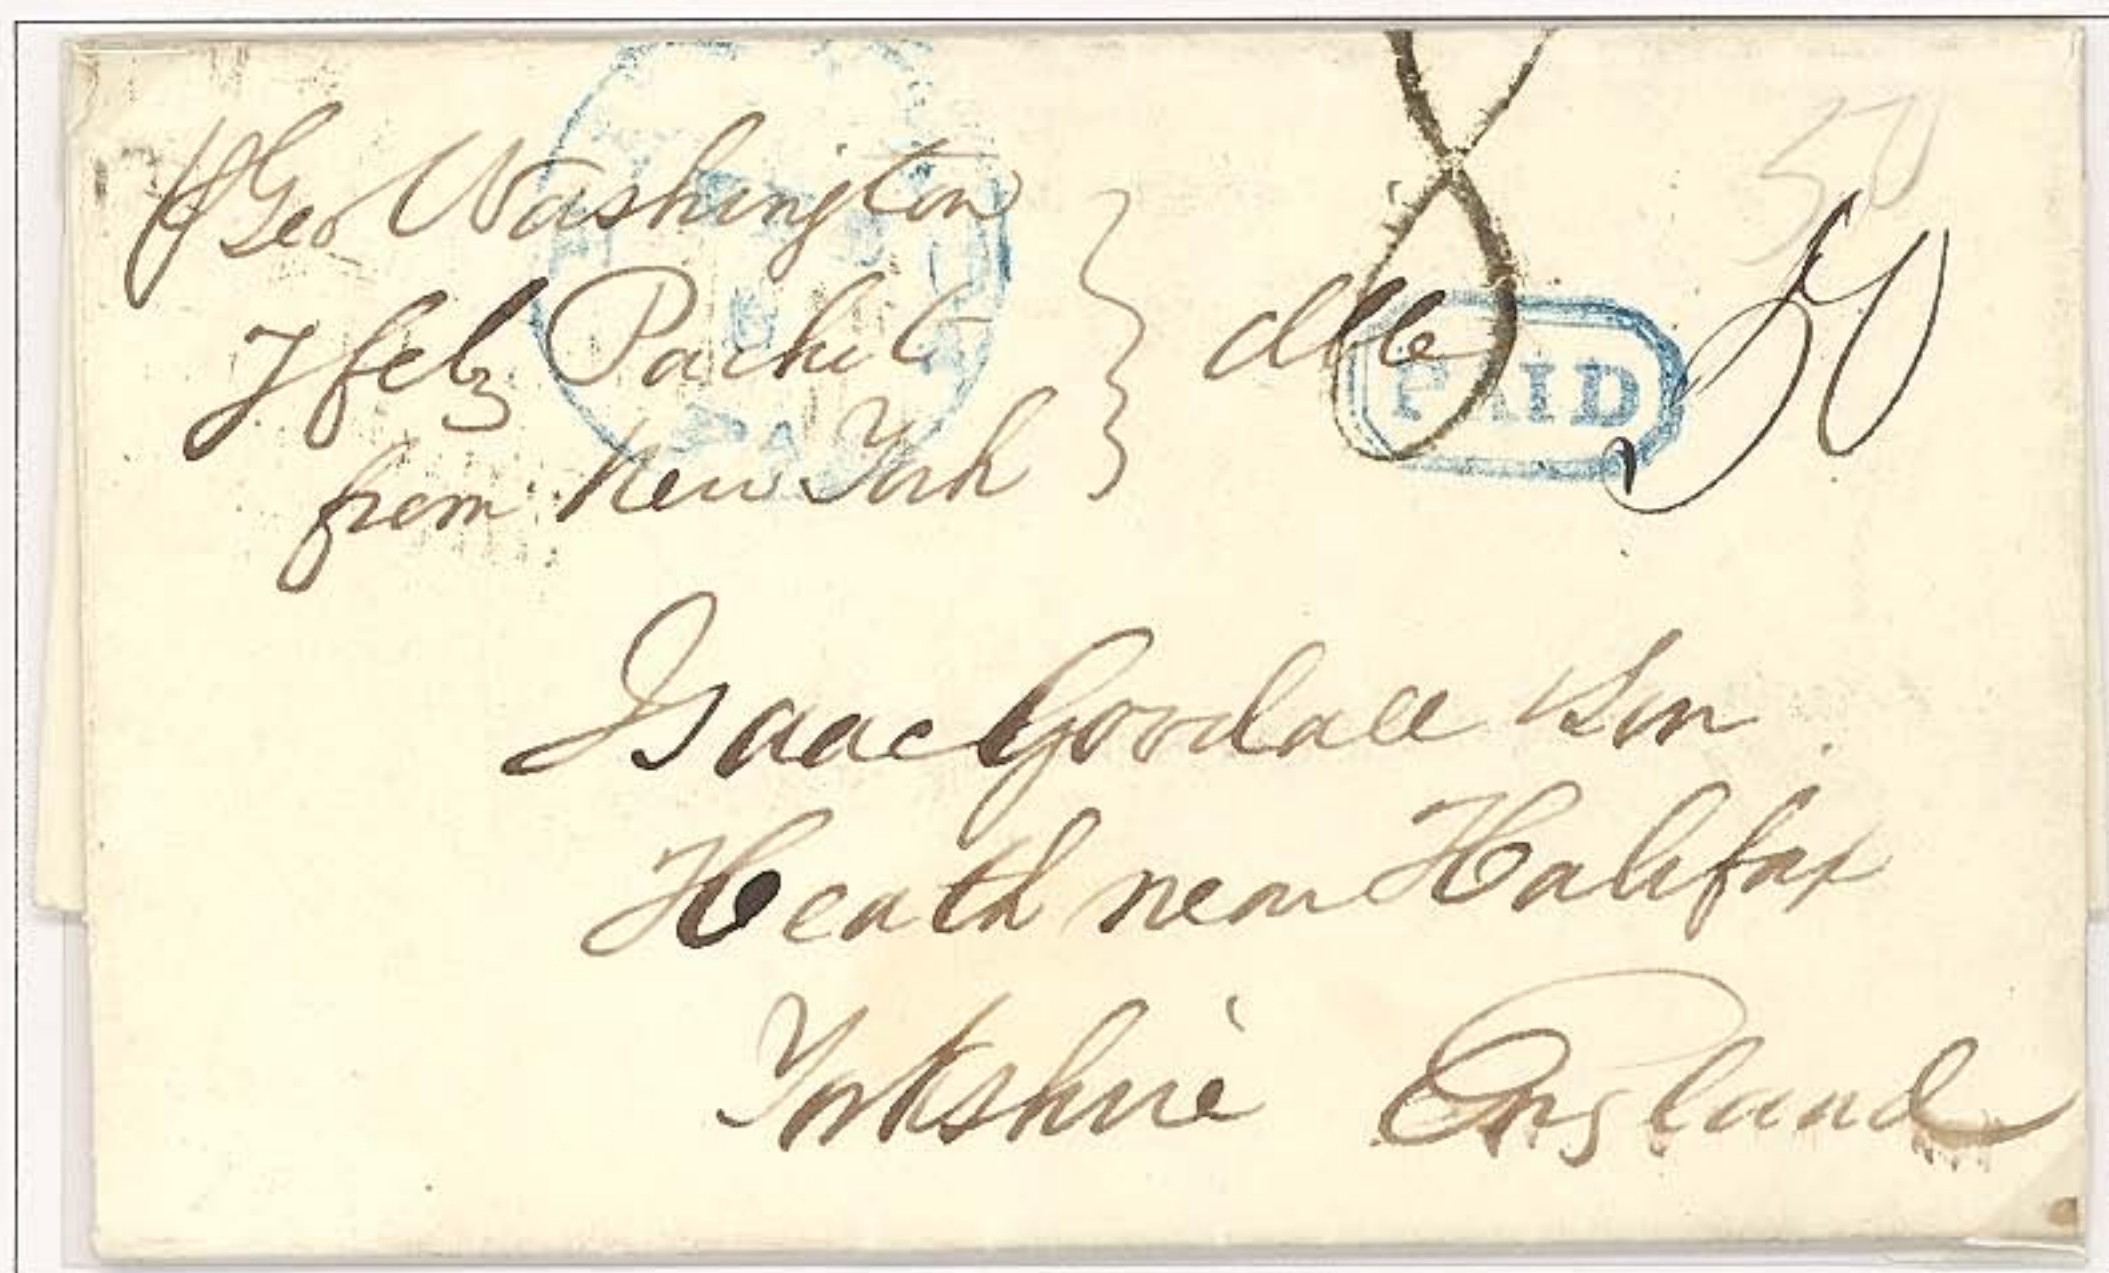 p Geo Washington
7 feby Packet
from New York
8
50
50
PAID
PA
Isaac Goodall Son
Heath near Halifax
Yorkshire England